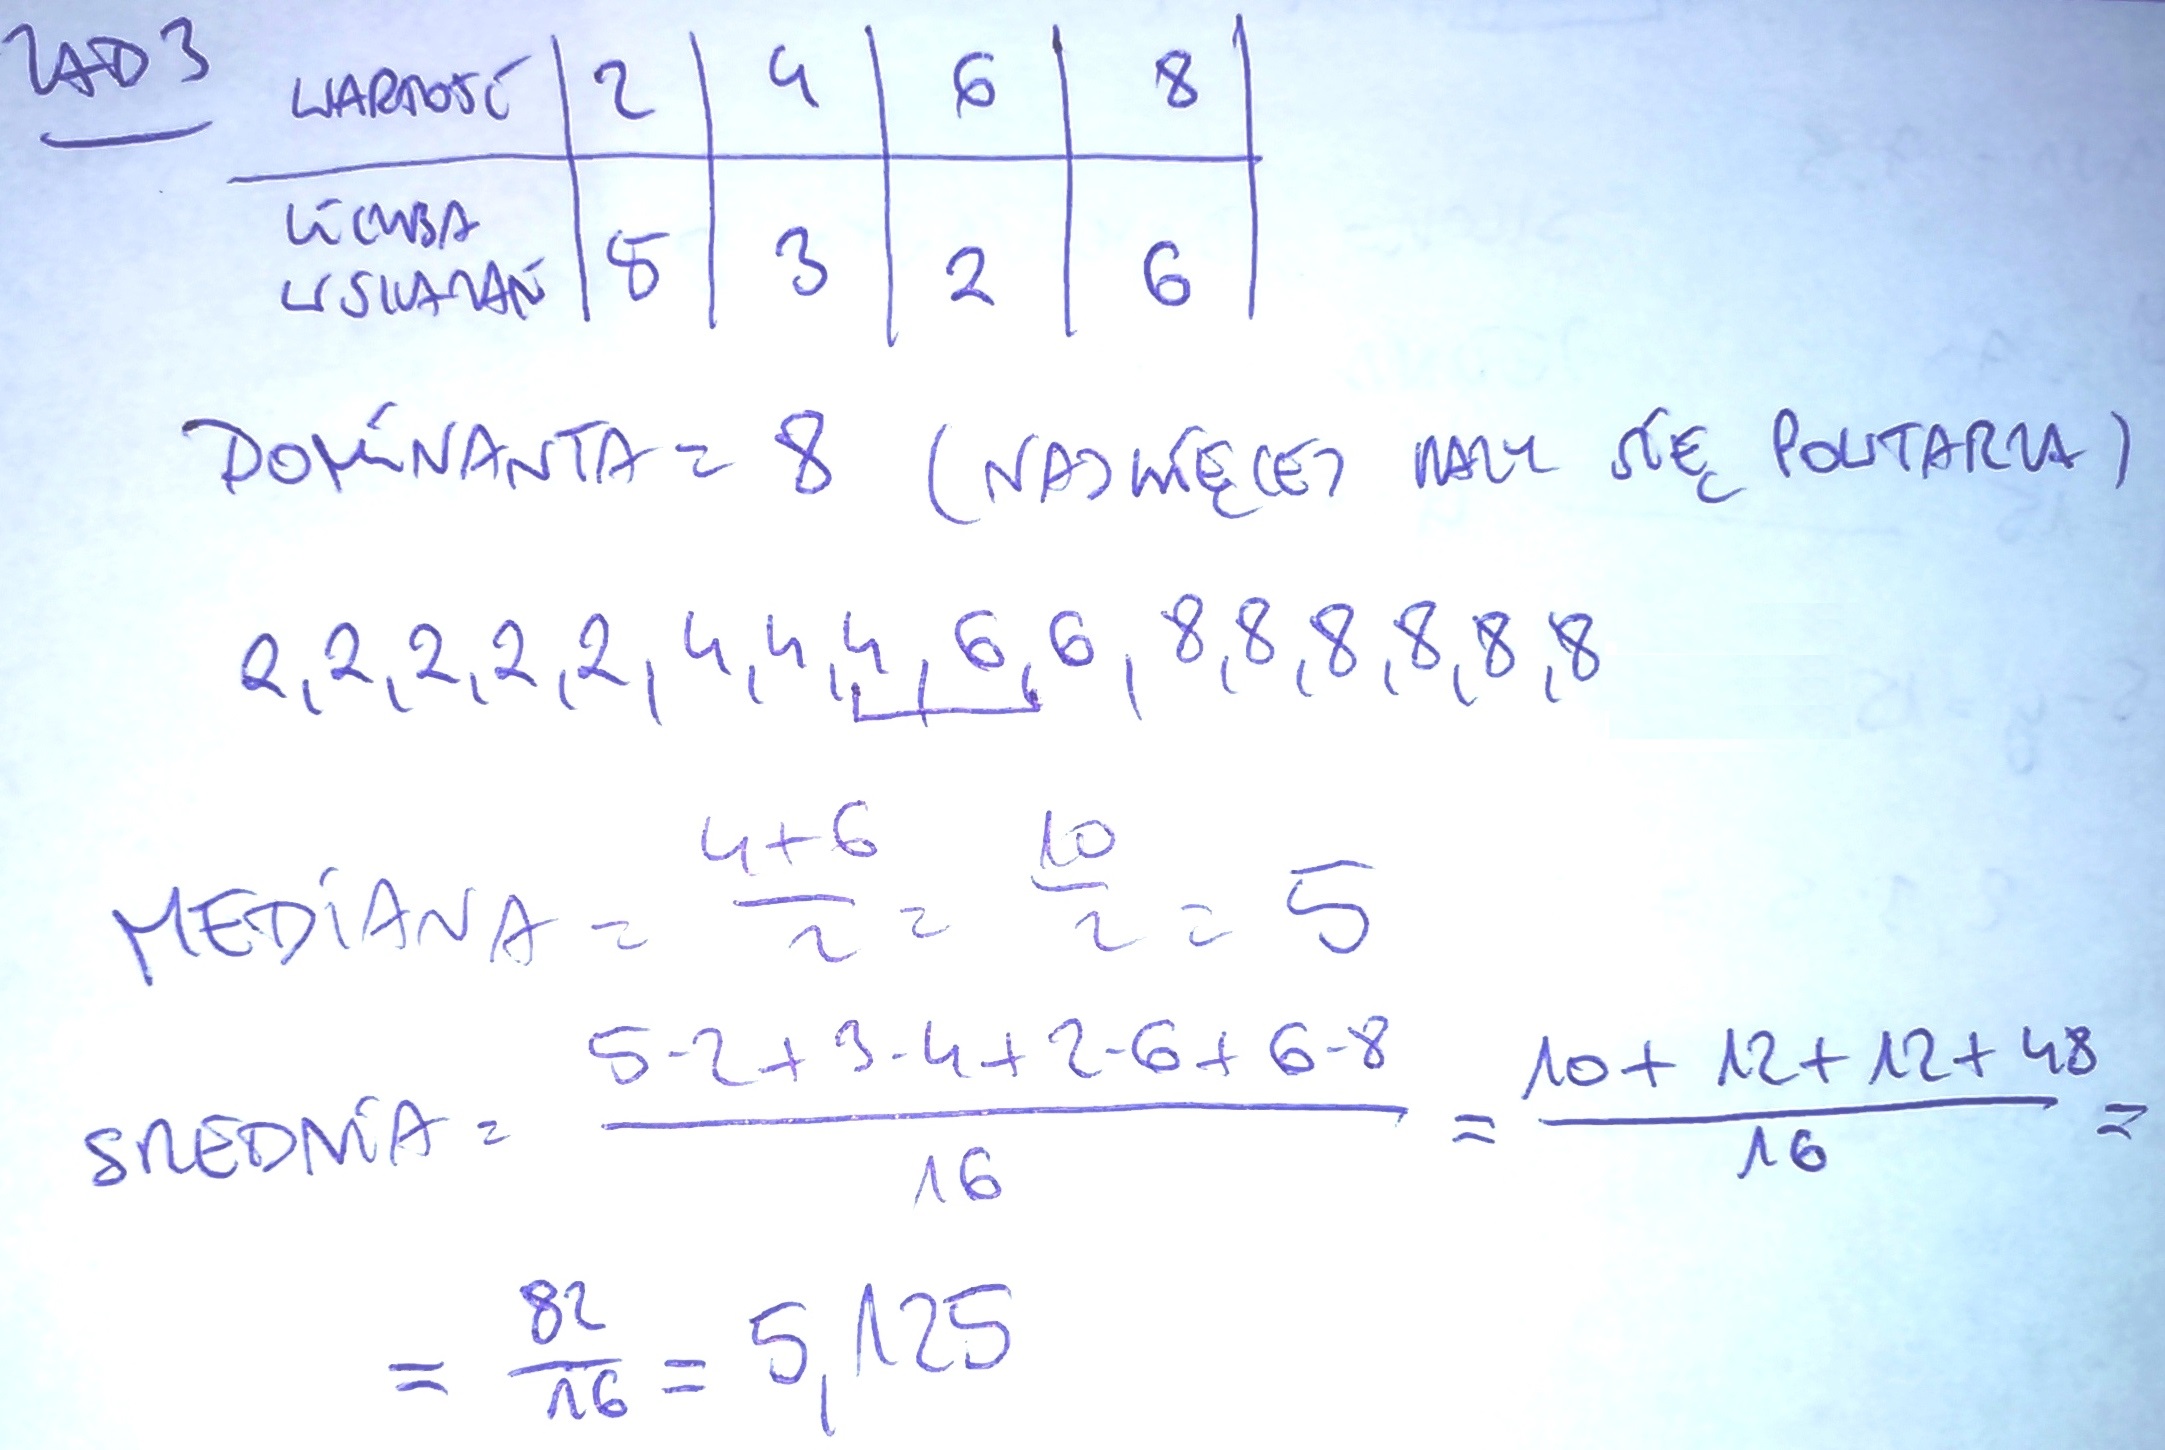 ZAD 3
WARTOŚĆ | 2 | 4 | 6 | 8 |
LICZBA
WSKAZAŃ | 5 | 3 | 2 | 6 |
DOMINANTA = 8 (NAJWIĘCEJ RAZY SIĘ POWTARZA)
2, 2, 2, 2, 2, 4, 4, 4, 6, 6, 8, 8, 8, 8, 8, 8
MEDIANA = \frac{4+6}{2} = \frac{10}{2} = 5
SREDNIA = \frac{5·2+3·4+2·6+6·8}{16} = \frac{10+12+12+48}{16} =
= \frac{82}{16} = 5,125